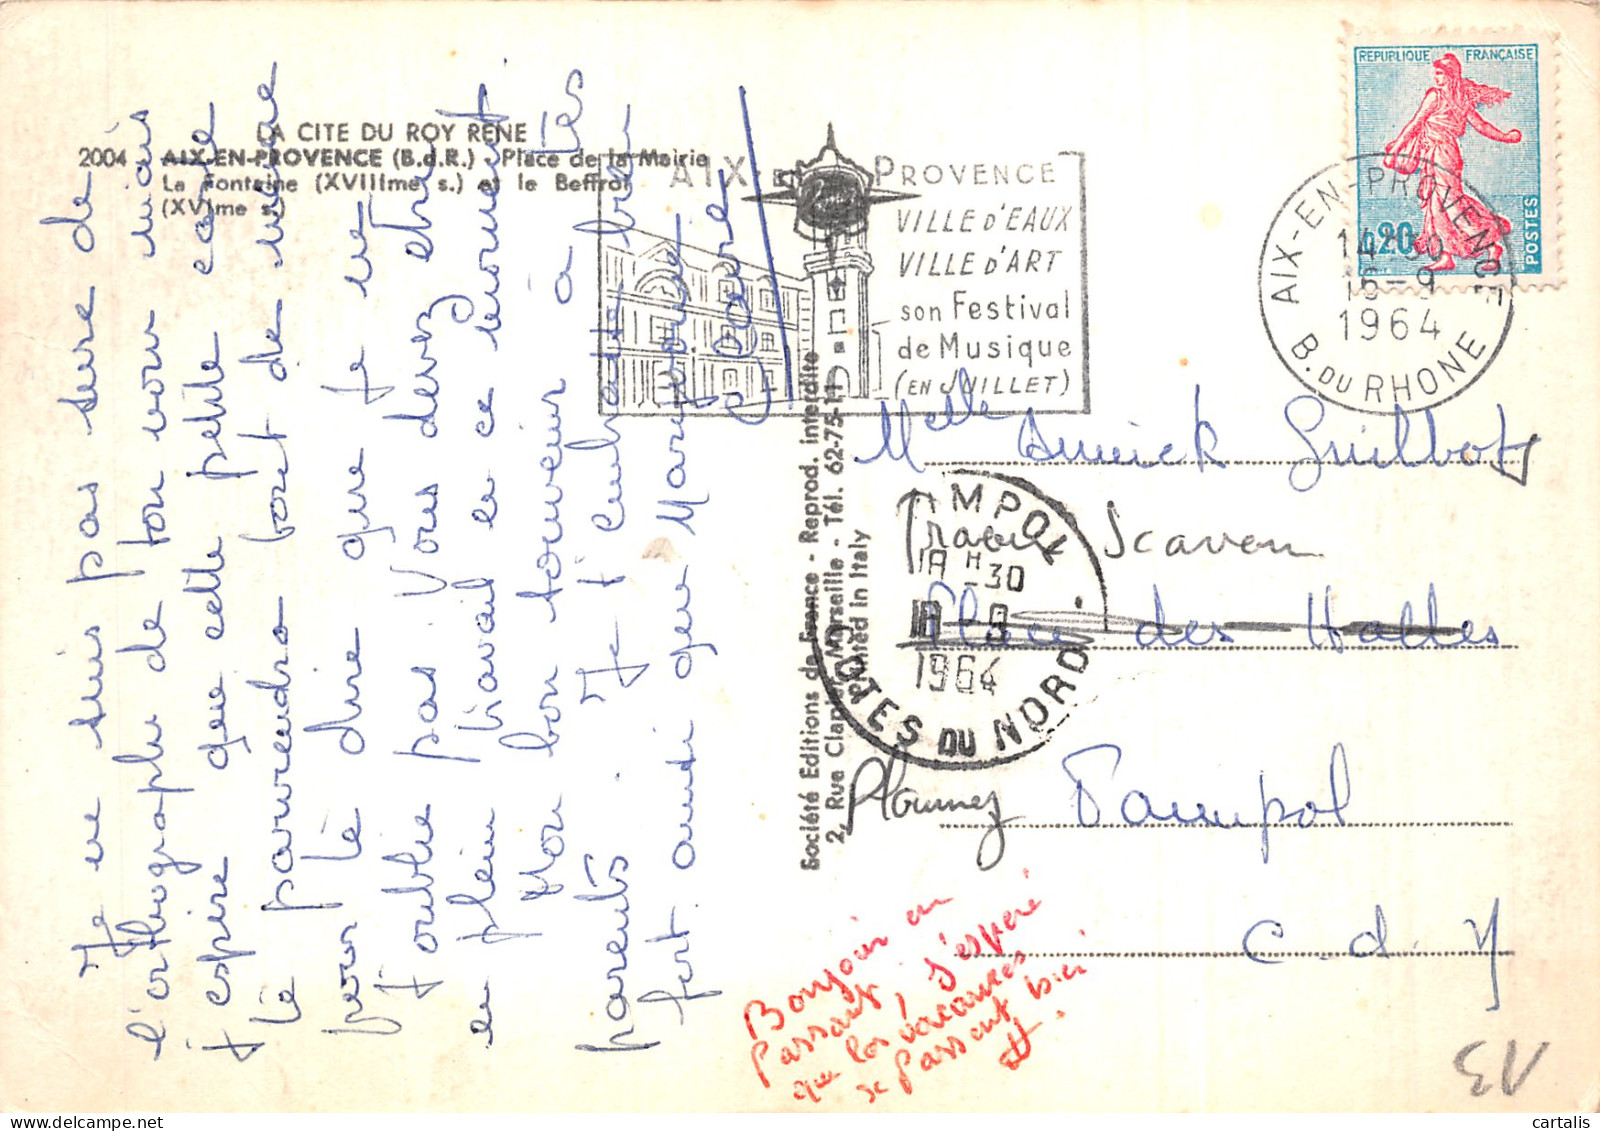 LA CITE DU ROY RENE
2004 - AIX-EN-PROVENCE (B.d.R.) - Place de la Mairie
La Fontaine (XVIIIme s.) et le Beffroi
(XVIme s.)
Je ne suis pas sure de
l'orthographe de ton nom mais
j'espire que cette petite carte
te parviendra tout de même
pour te dire que je ne
t'oublie pas. Vous devez être
en plein travail en ce moment
Mon bon souvenir à tes
parents. Je t'embrasse bien
fort ainsi que
AIX EN PROVENCE
VILLE D'EAUX
VILLE D'ART
son Festival
de Musique
(EN JUILLET)
REPUBLIQUE FRANÇAISE
0,20
POSTES
AIX-EN-PROVENCE
14H30
16-9
1964
B. DU RHONE
Société Editions de France - Reprod. interdite
2, Rue Clapier, Marseille - Tél. 62-75-11
Printed in Italy
Melle Annick Guillou
PAIMPOL
18H-30
1964
COTES DU NORD
Place des Halles
Paimpol
C. d. N
Bonjour en
passant, j'espère
que les vacances
se passent bien
13
cartalis